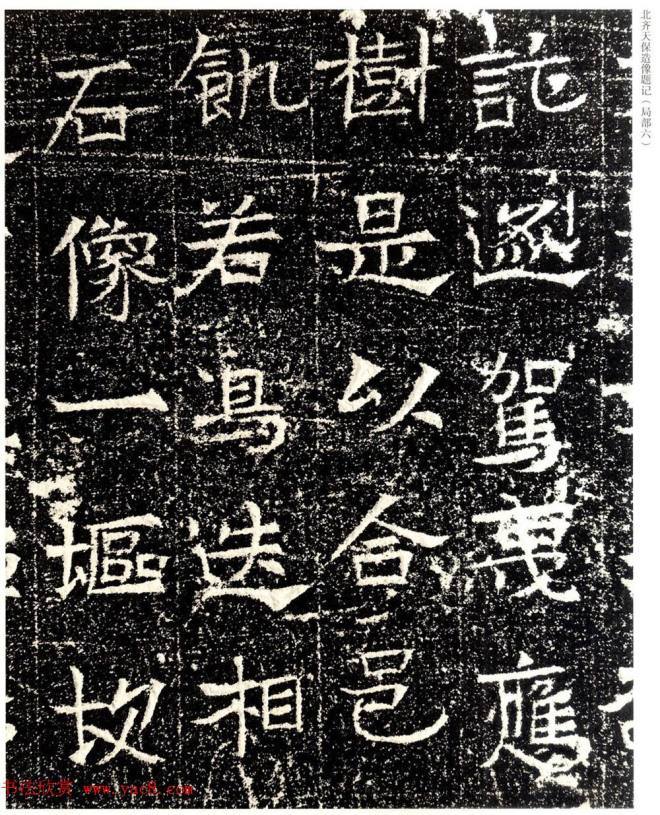 北齐天保造像题记（局部六）
託遥駕蔑應
樹是以合邑
飢若鳥迭相
石像一塸故
书法欣赏 www.yac8.com